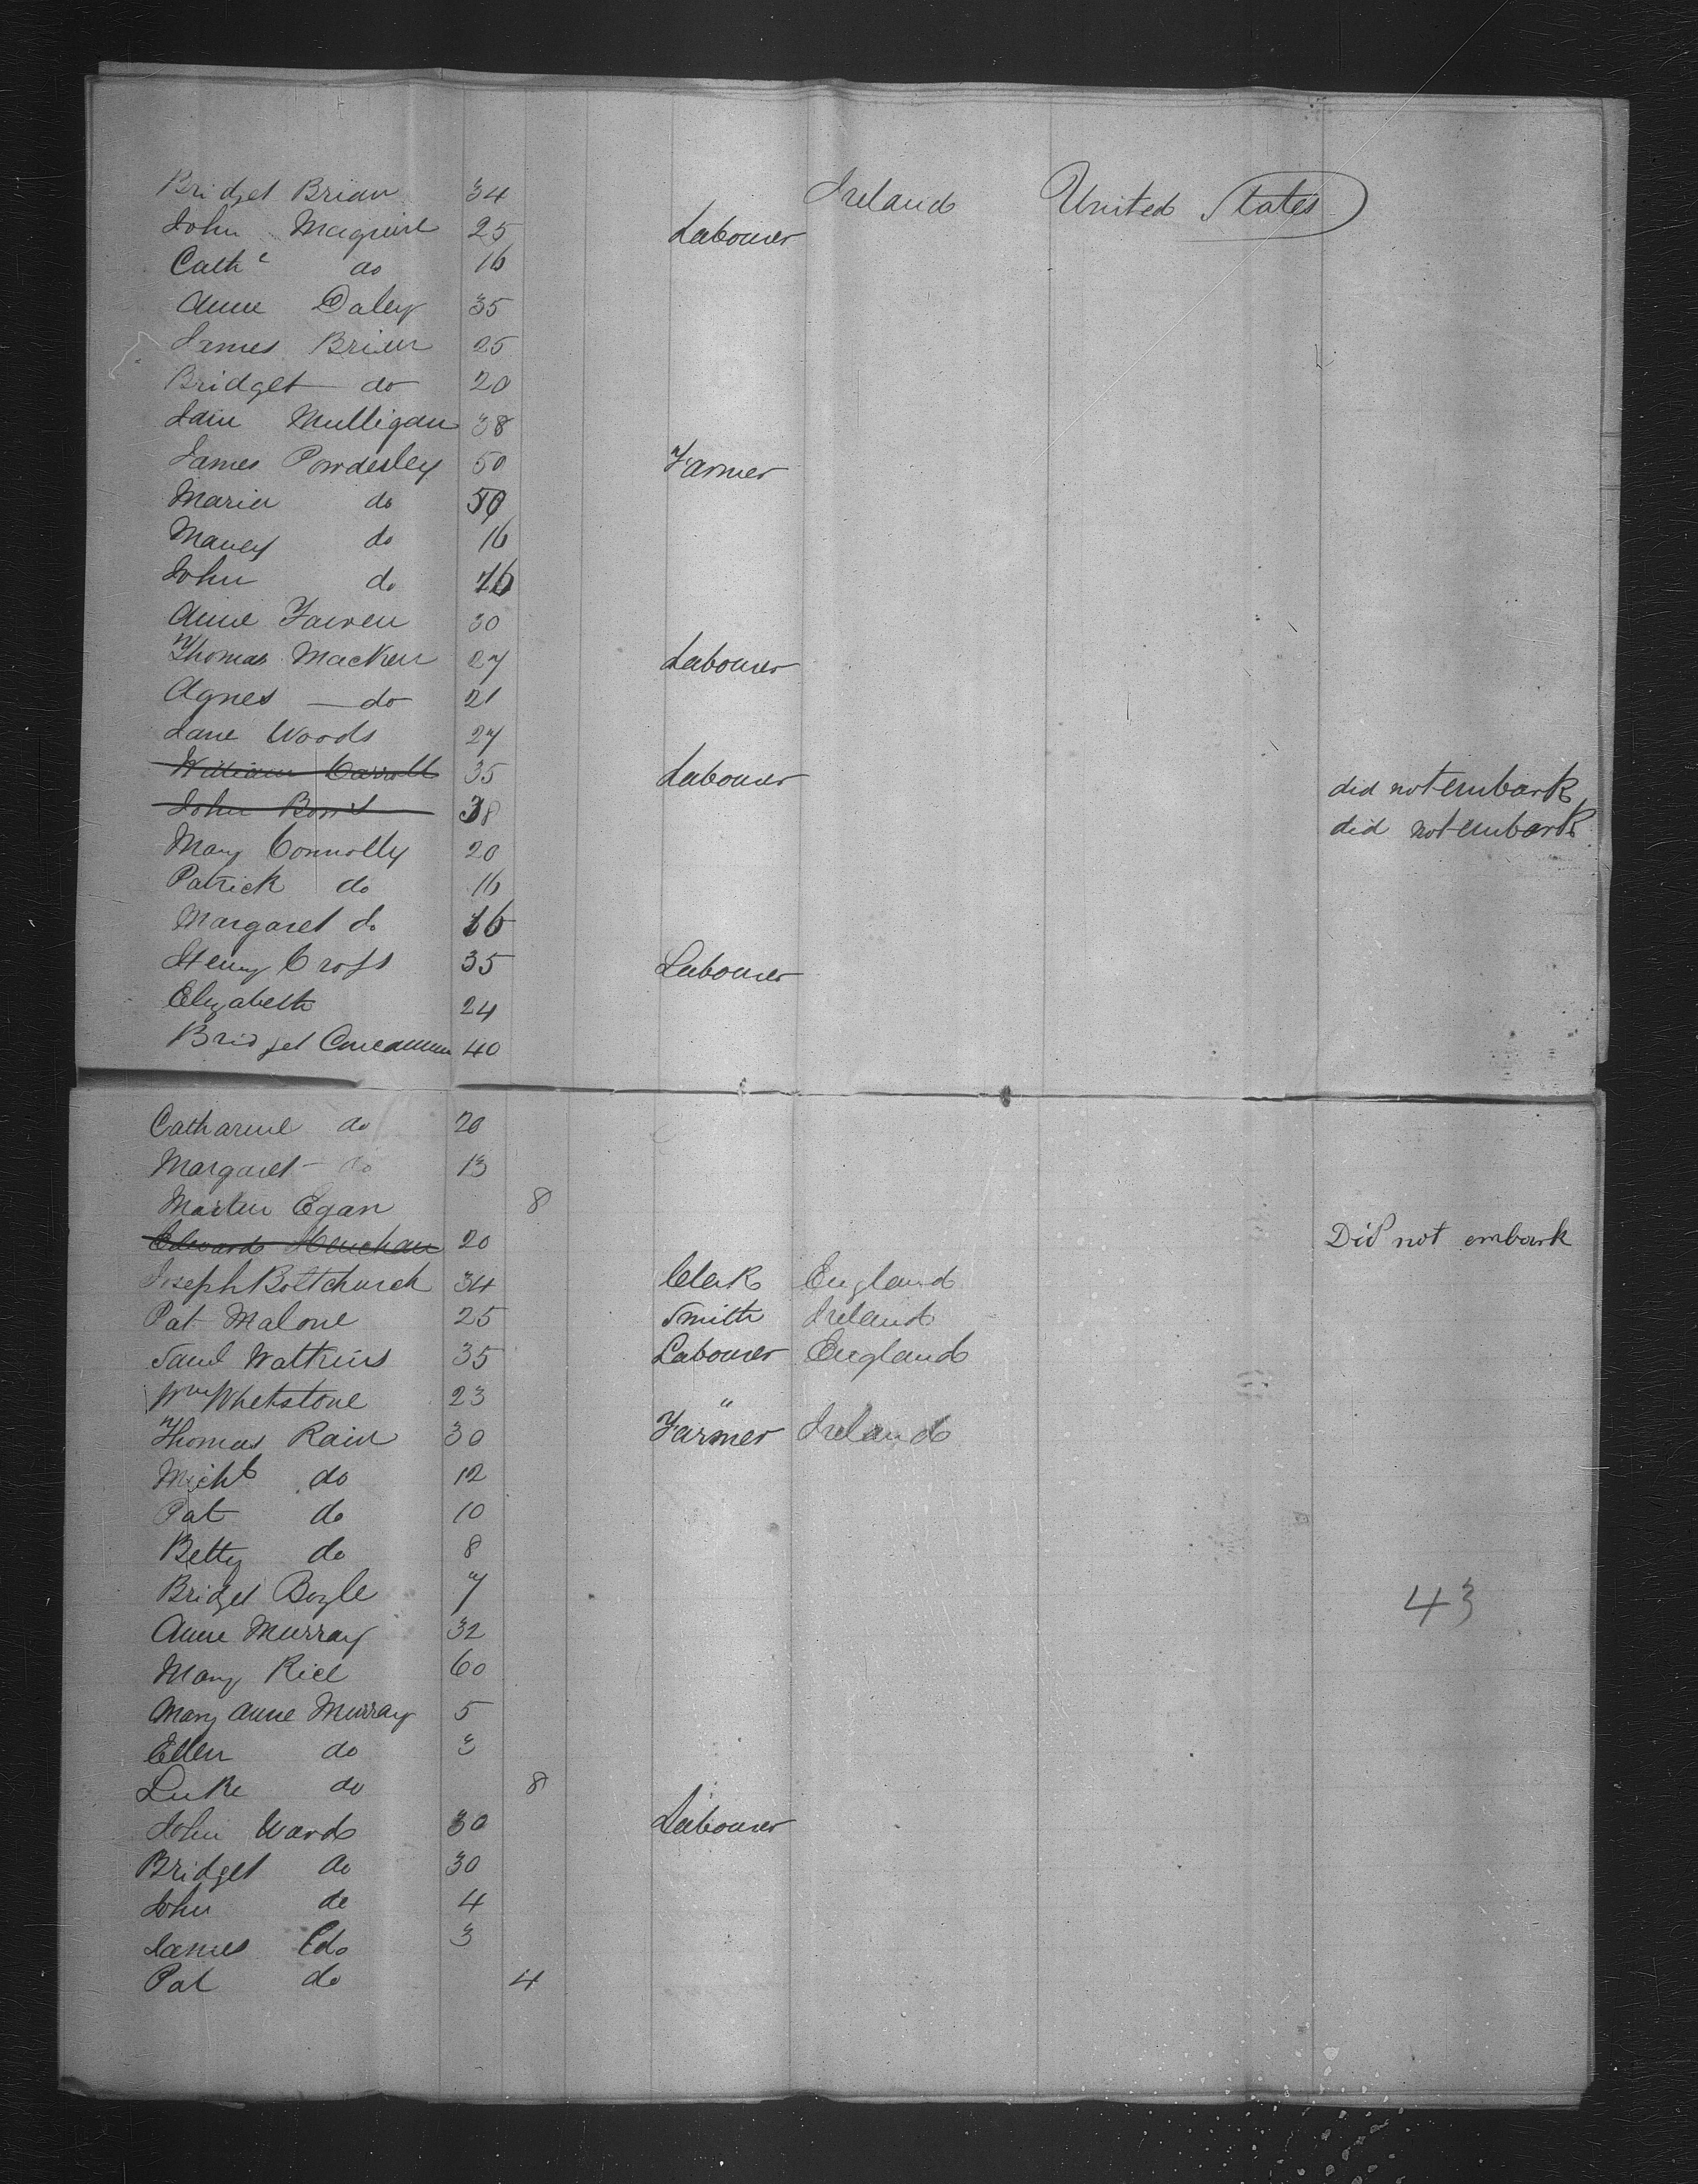 Bridget Brian 34 Ireland United States
John Maguire 25 Labourer
Cathe do 16
Anne Daley 35
James Brian 25
Bridget do 20
Jane Mulligan 38
James Powderley 50 Farmer
Maria do 50
Mancy do 16
John do 16
Anne 30
Thomas Macken 27 Labourer
Agnes do 21
Jane Woods 27
William Carroll 35 Labourer did not embark
John 38 did not embark
Mary Connolly 20
Patrick do 16
Margaret do 16
Henry Croft 35 Labourer
Elizabeth 24
Bridget 40
Catharine do 20
Margaret do 13
Martin Egan 8
Edward 20 Did not embark
Joseph Boltchurch 34 Clerk England
Pat Malone 25 Smith Ireland
Saml Watkins 35 Labourer England
Wm Whetstone 23 "
Thomas Rain 30 Farmer Ireland
Michl do 12
Pat do 10
Betty do 8
Bridget Boyle 7 43
Anne Murray 32
Mary Rice 60
Mary Anne Murray 5
Ellen do 3
Luke do 8
John Ward 30 Labourer
Bridget do 30
John do 4
James do 3
Pat do 4